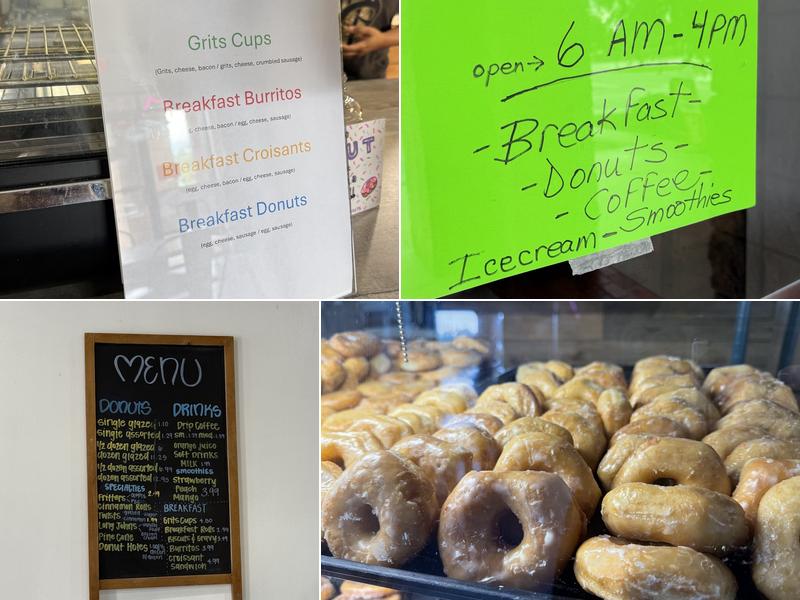 Grits Cups
(Grits, cheese, bacon / grits, cheese, crumbled sausage)
Breakfast Burritos
cheese, bacon / egg, cheese, sausage)
Breakfast Croisants
(egg, cheese, bacon / egg, cheese, sausage)
Breakfast Donuts
(egg, cheese, sausage / egg, sausage)
UT
open→ 6 AM-4PM
-Breakfast-
-Donuts-
- Coffee-
Icecream-Smoothies
MENU
DONUTS
single glazed 1.10
single assorted 1.29
1/2 dozen glazed 6
dozen glazed 11.25
1/2 dozen assorted 6.99
dozen assorted 12.95
SPECIALTIES
Fritters 2.49
Cinnamon Rolls
Twists
Long Johns
Pine Cone
Donut Holes
DRINKS
Drip Coffee
sm 1.79 med 1.99
orange juice
Soft Drinks
Milk 1.99
smoothies
Strawberry
Peach 3.99
Mango
BREAKFAST
Grits Cups 4.00
Breakfast Rolls 2.99
Biscuits & Gravy 3.99
Burritos 3.99
croissant
Sandwich 4.99